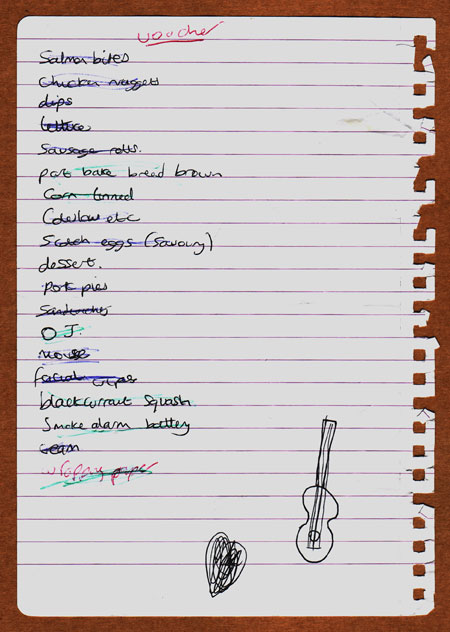 voucher
Salmon bites
Chicken nuggets
dips
lettice
Sausage rolls.
part bake bread brown
Corn tinned
Coleslaw etc
Scotch eggs (savoury)
dessert.
Pork pies
Sandwiches
O J.
mouse
facial wipes
blackcurrant Squash
Smoke alarm battery
cream
wrapping paper